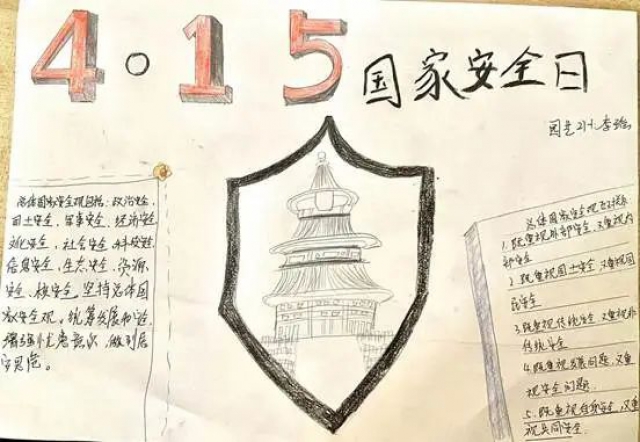 4·15国家安全日
总体国家安全观包括:政治安全、
国土安全、军事安全、经济安全
文化安全、社会安全、科技安全、
信息安全、生态安全、资源
安全、核安全。坚持总体国
家安全观。统筹发展和安全,
增强忧患意识,做到居
安思危。
总体国家安全观五对关系
1.既重视外部安全,又重视内
部安全
2.既重视国土安全,又重视国
民安全
3.既重视传统安全,又重视非
传统安全
4.既重视发展问题,又重
视安全问题.
5.既重视自身安全,又重
视共同安全.